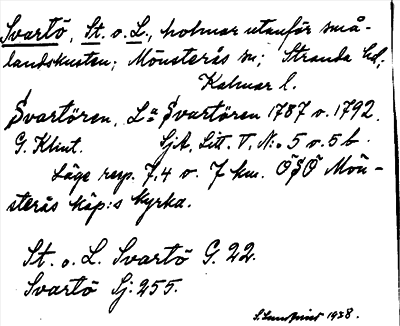 Svartö, St. o. L., holmar utanför små-
landskusten; Mönsterås sn; Stranda hd;
Kalmar l.
Svartören, La Svartören 1787 o. 1792.
G. Klint. SjA, Litt. T, N:o 5 o. 5 b.
Läge resp. 7,4 o. 7 km. ÖSÖ Mön-
sterås köp:s kyrka.
St. o. L. Svartö G. 22.
Svartö Sj. 255.
1938.